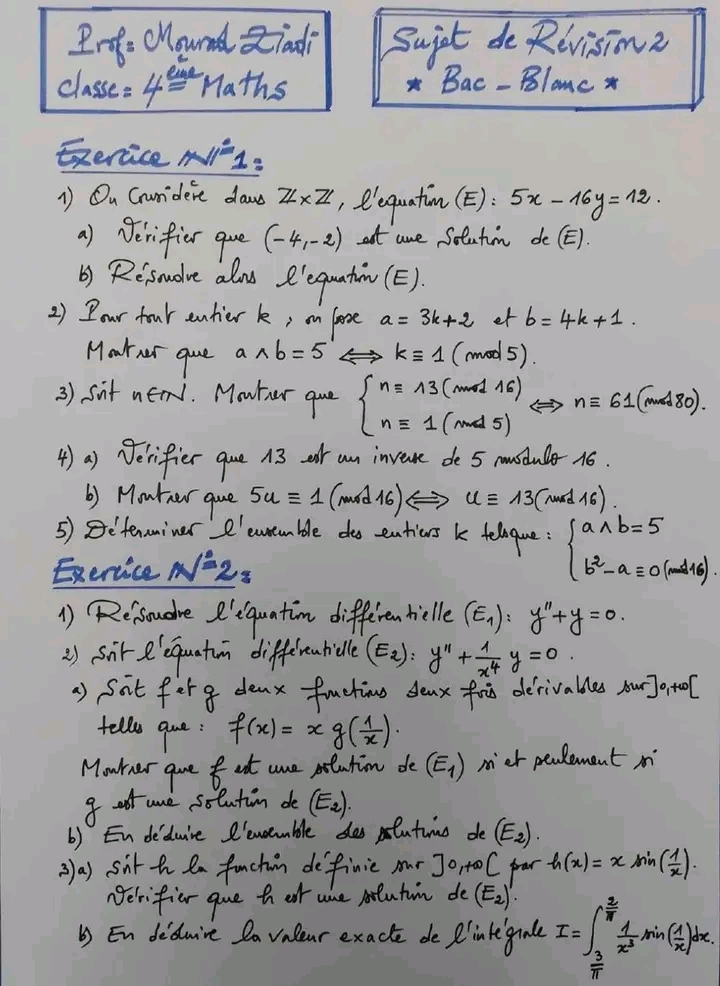 Prof: Mourad Ziadi
classe: 4ème Maths
Sujet de Révision 2
* Bac - Blanc *
Exercice N°1:
1) On Considère dans ℤ×ℤ, l'equation (E): 5x - 16y = 12.
a) Vérifier que (-4,-2) est une solution de (E).
b) Résoudre alors l'equation (E).
2) Pour tout entier k, on pose a = 3k+2 et b = 4k+1.
Montrer que a ∧ b = 5 ⟺ k ≡ 1 (mod 5).
3) Soit n∈ℕ. Montrer que { n ≡ 13 (mod 16) ⟺ n ≡ 61 (mod 80).
n ≡ 1 (mod 5)
4) a) Vérifier que 13 est un inverse de 5 modulo 16.
b) Montrer que 5u ≡ 1 (mod 16) ⟺ u ≡ 13 (mod 16).
5) Déterminer l'ensemble des entiers k tels que : { a ∧ b = 5
b² - a ≡ 0 (mod 16).
Exercice N°2:
1) Résoudre l'équation différentielle (E₁): y'' + y = 0.
2) Soit l'équation différentielle (E₂): y'' + 1/x⁴ y = 0.
a) Soit f et g deux fonctions deux fois dérivables sur ]0,+∞[
telles que : f(x) = x g(1/x).
Montrer que f est une solution de (E₁) si et seulement si
g est une solution de (E₂).
b) En déduire l'ensemble des solutions de (E₂).
3) a) Soit h la fonction définie sur ]0,+∞[ par h(x) = x sin(1/x).
Vérifier que h est une solution de (E₂).
b) En déduire la valeur exacte de l'intégrale I = ∫_{3/π}^{2/π} 1/x³ sin(1/x) dx.